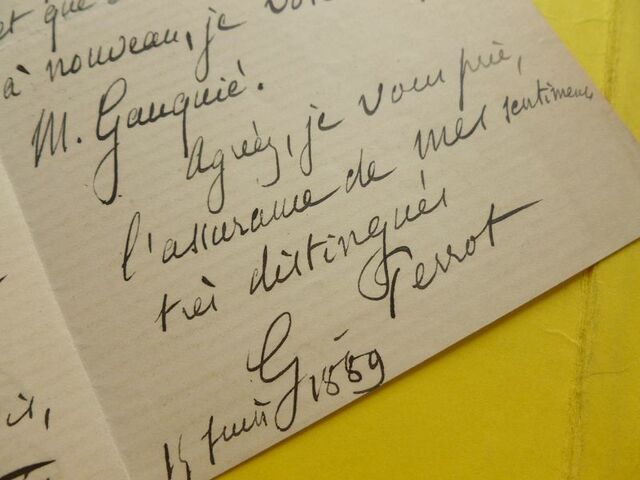 et que
à nouveau, je
M. Gauquié.
Agréez, je vous prie,
l'assurance de mes sentiments
très distingués
G Perrot
15 juin 1889
is,